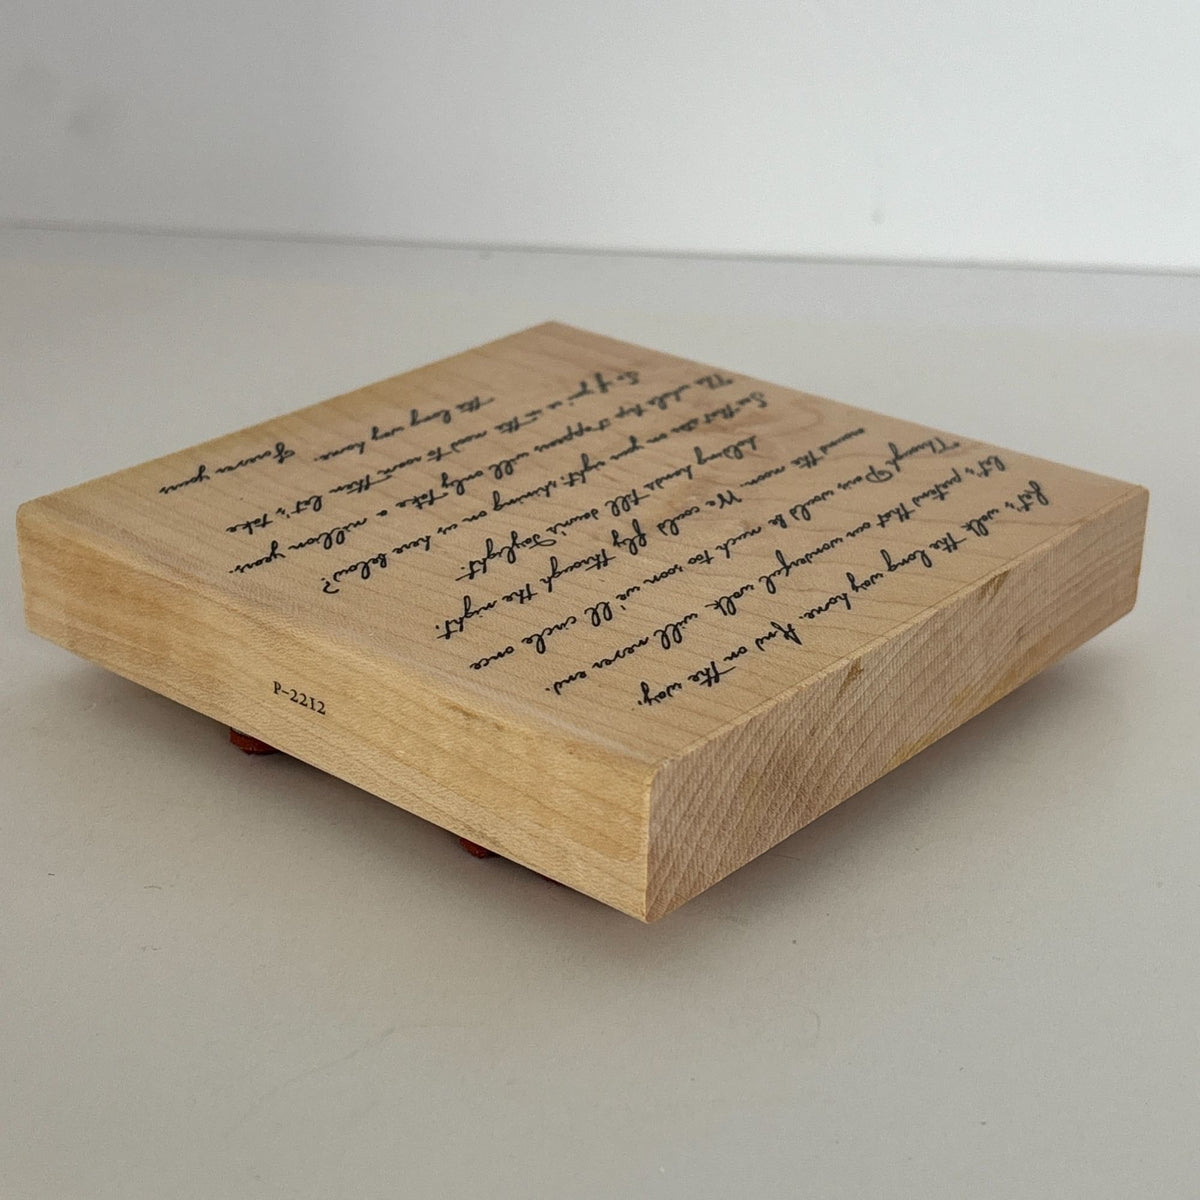 Let's walk the long way home. And on the way,
let's pretend that our wonderful walk will never end.
Though Paris would be much too soon we'll circle once
around the moon. We could fly through the night.
holding hands till dawn's daylight.
See that star on your right, shining on us here below?
The whole trip it appears will only take a million years.
So if you're in the mood to roam then let's take
the long way home. Forever yours
P-2212